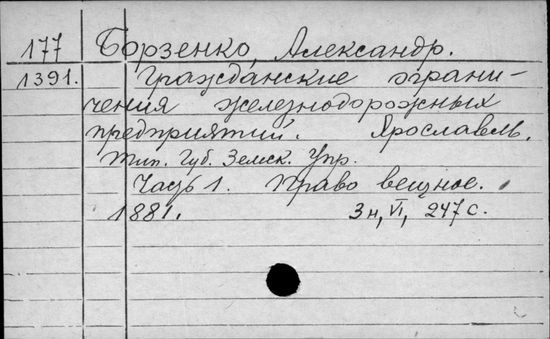 177 Борзенко, Александр.
1391. Гражданские ограни-
чения железнодорожных
предприятий. Ярославль.
Тип. Губ. Земск. Упр.
Часть 1. Право вещное.
1881. 3н, VI, 247 с.